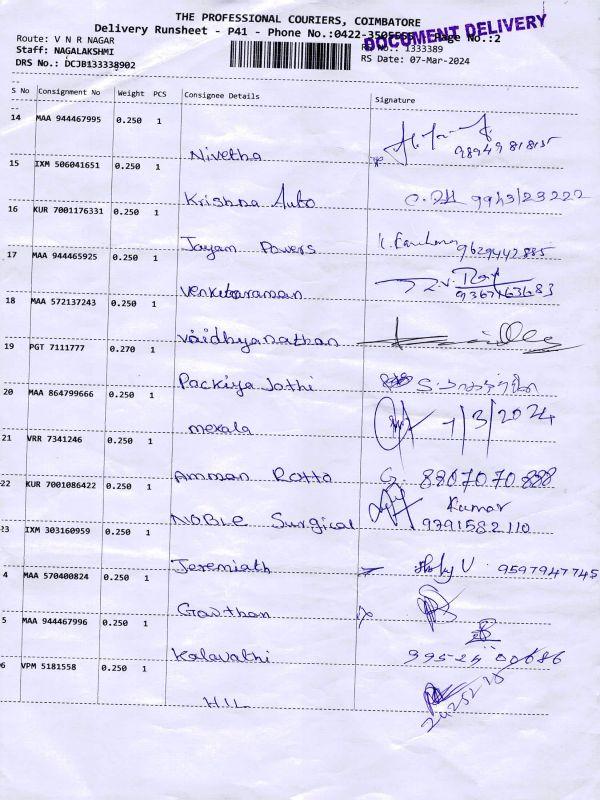 THE PROFESSIONAL COURIERS, COIMBATORE
Delivery Runsheet - P41 - Phone No.:0422-350 Page No.:2
DOCUMENT DELIVERY
Route: V N R NAGAR
RS No.: 1333389
Staff: NAGALAKSHMI
RS Date: 07-Mar-2024
DRS No.: DCJB133338902
S No Consignment No Weight PCS Consignee Details Signature
14 MAA 944467995 0.250 1
Nivetha 9894981815
15 IXM 506041651 0.250 1
Krishna Auto 9943123222
16 KUR 7001176331 0.250 1
Jayam Powers 9629442885
17 MAA 944465925 0.250 1
Venketaraman 9367163683
18 MAA 572137243 0.250 1
Vaidhyanathan
19 PGT 7111777 0.270 1
Packiya Jothi
20 MAA 864799666 0.250 1
mekala 7/3/2024
21 VRR 7341246 0.250 1
Amman Rotto G. 8807070888
22 KUR 7001086422 0.250 1
Kumar
NOBLE Surgical 9791582110
23 IXM 303160959 0.250 1
Jeremiath 9597947745
4 MAA 570400824 0.250 1
Gowthan
5 MAA 944467996 0.250 1
Kalavathi 99524 00686
6 VPM 5181558 0.250 1
H.I.L